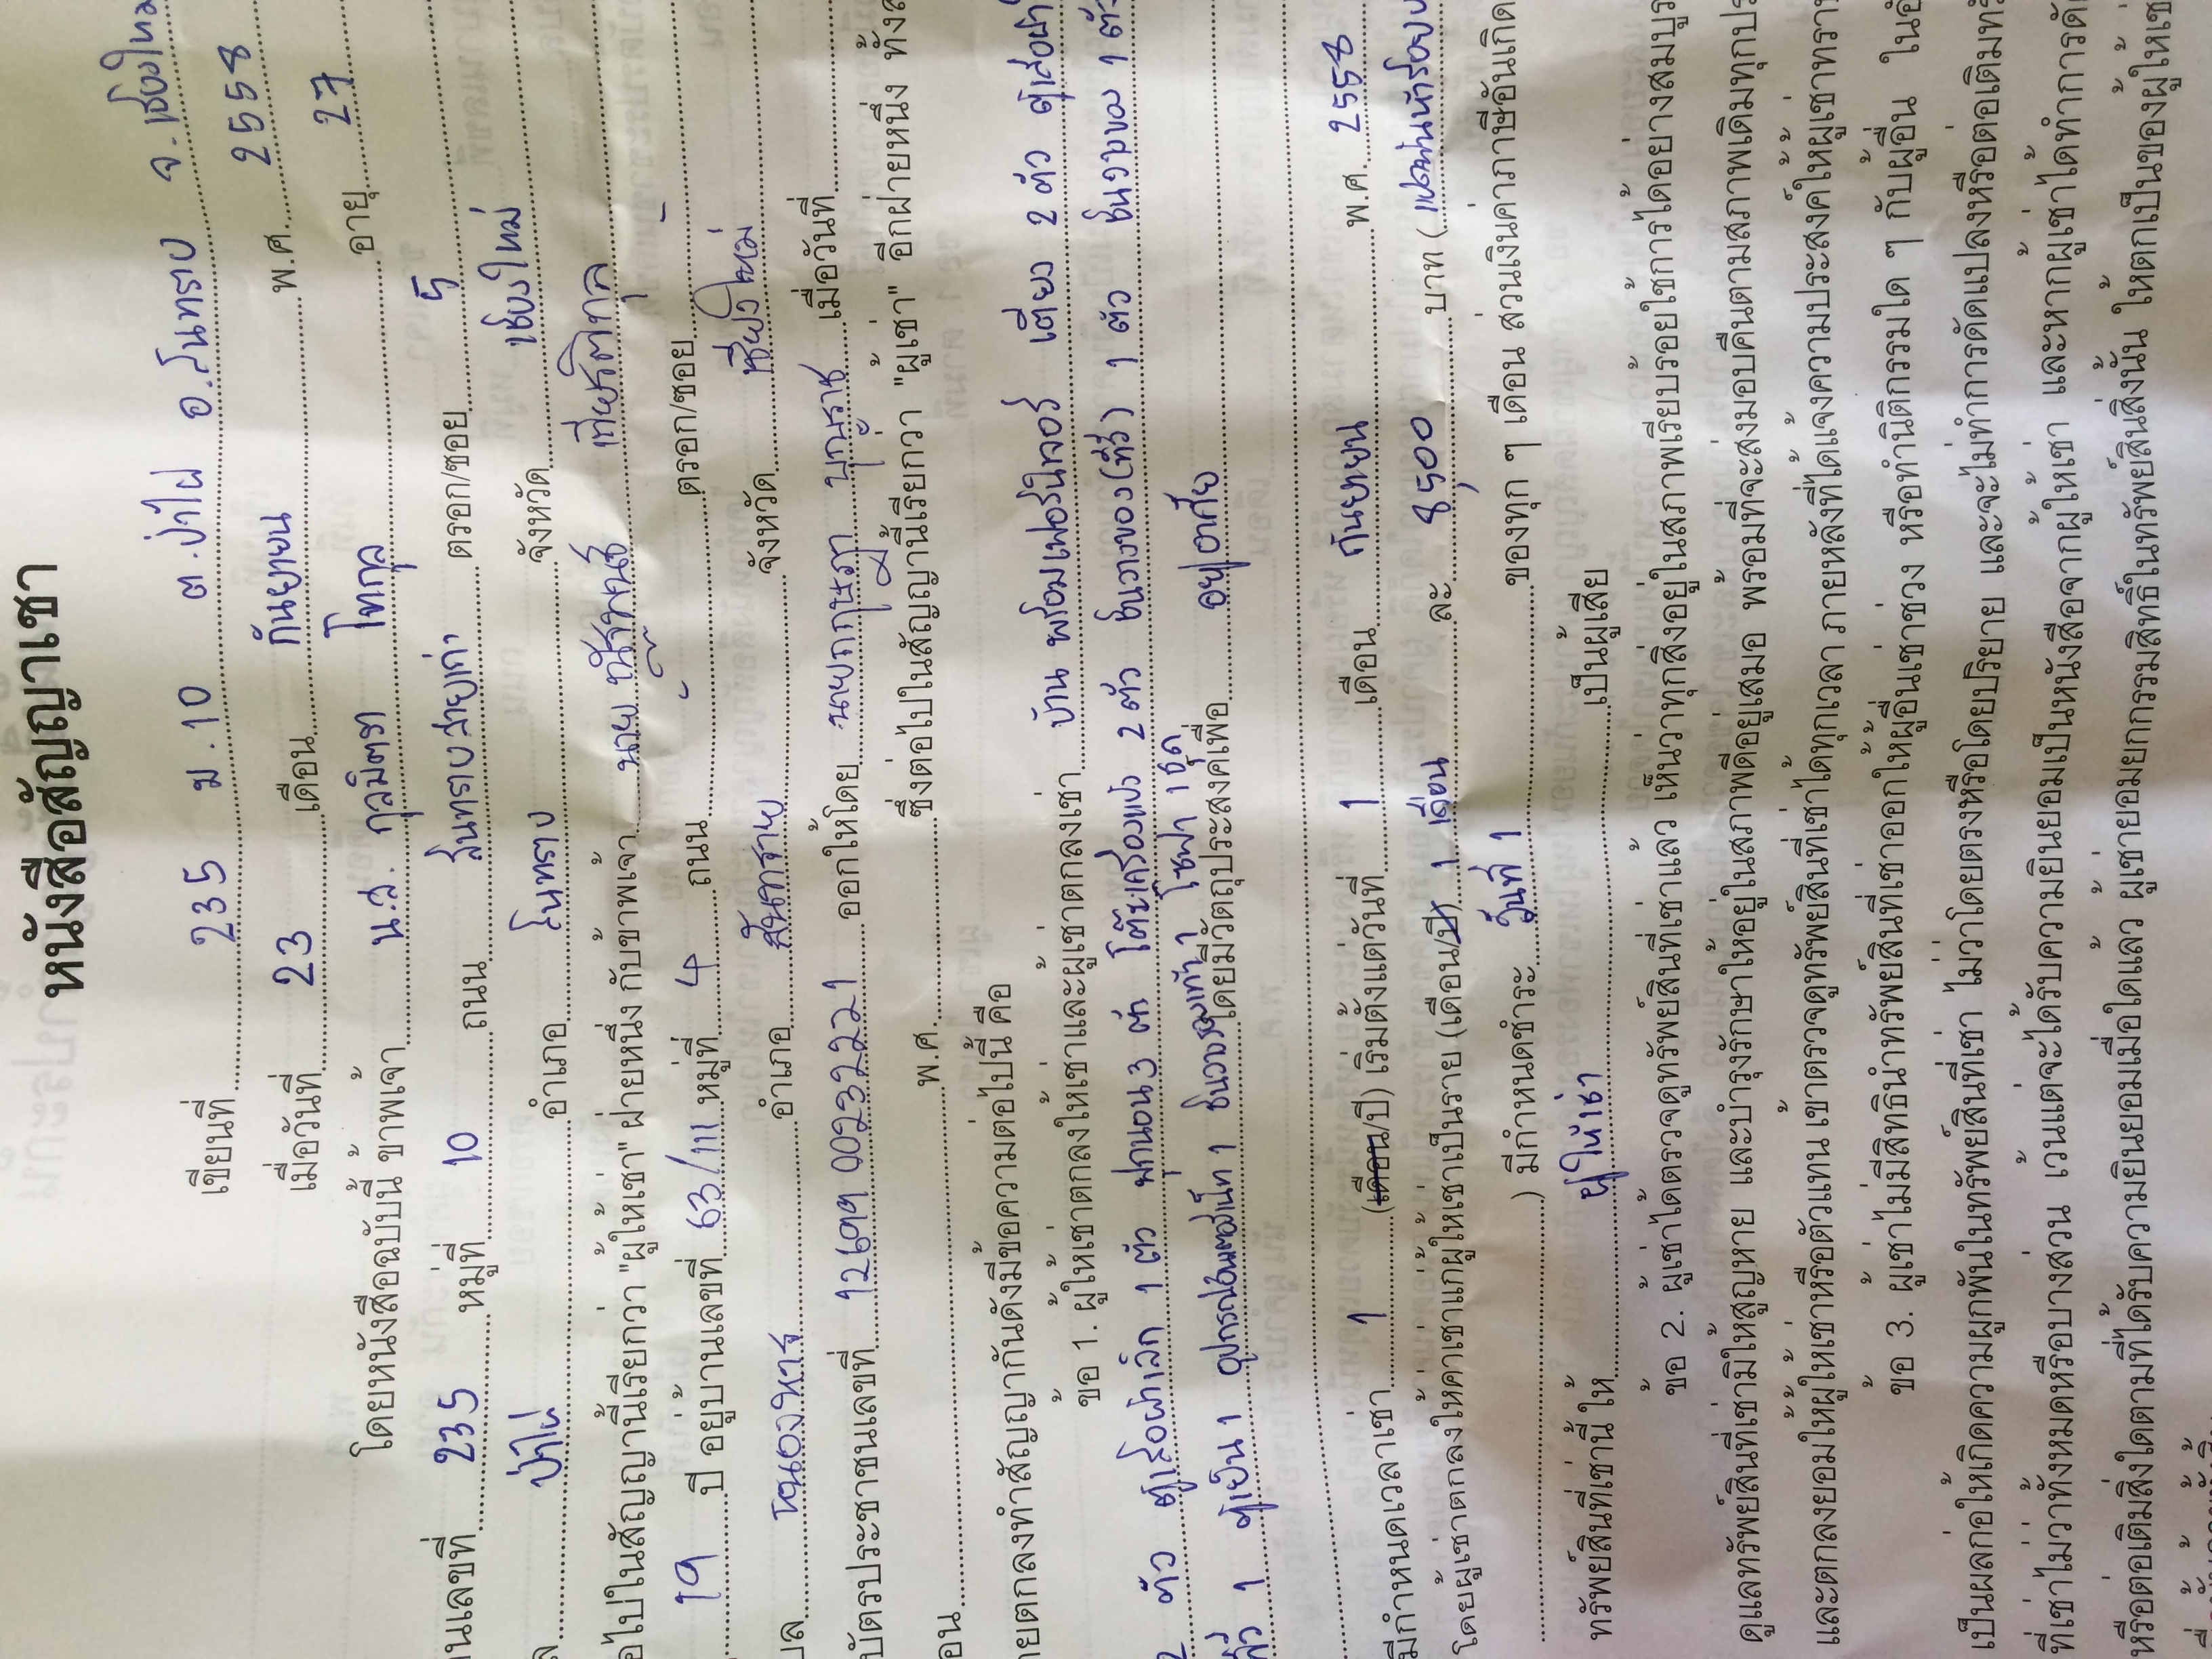 หนังสือสัญญาเช่า
เขียนที่ 235 ม.10 ต.ป่าไผ่ อ.สันทราย จ.เชียงใหม่
เมื่อวันที่ 23 เดือน กันยายน พ.ศ. 2558
โดยหนังสือฉบับนี้ ข้าพเจ้า น.ส. กุลมิตรา โทกุล อายุ 27
านเลขที่ 235 หมู่ที่ 10 ถนน สันทรายสายเก่า ตรอก/ซอย 5
ล ป่าไผ่ อำเภอ สันทราย จังหวัด เชียงใหม่
อไปในสัญญานี้เรียกว่า "ผู้ให้เช่า" ฝ่ายหนึ่ง กับข้าพเจ้า นาย เกียรติกุล
19 ปี อยู่บ้านเลขที่ 63/111 หมู่ที่ 4 ถนน - ตรอก/ซอย -
บล หนองหาร อำเภอ สันทราย จังหวัด เชียงใหม่
บัตรประชาชนเลขที่ 1269900232221 ออกให้โดย นายกฤษฎา บุญราช เมื่อวันที่
อน พ.ศ. ซึ่งต่อไปในสัญญานี้เรียกว่า "ผู้เช่า" อีกฝ่ายหนึ่ง ทั้งส
ายตกลงทำสัญญากันดังมีข้อความต่อไปนี้ คือ
ข้อ 1. ผู้ให้เช่าตกลงให้เช่าและผู้เช่าตกลงเช่า บ้าน พร้อมเฟอร์นิเจอร์ เตียง 2 ตัว ตู้เสื้อผ้า
2 ตัว ตู้เสื้อผ้าเล็ก 1 ตัว ฟูกนอน 3 ตัว โต๊ะเครื่องแป้ง 2 ตัว ชั้นวางของ(ทีวี) 1 ตัว ชั้นวางของ 1 ตัว
ทีวี 1 ตู้เย็น 1 อุปกรณ์อินเตอร์เน็ท 1 ชั้นวางรองเท้า 1 โซฟา 1 ชุด โดยมีวัตถุประสงค์เพื่อ อยู่อาศัย
มีกำหนดเวลาเช่า 1 (เดือน/ปี) เริ่มตั้งแต่วันที่ 1 เดือน กันยายน พ.ศ. 2558
โดยผู้เช่าตกลงให้ค่าเช่าแก่ผู้ให้เช่าเป็นราย (เดือน/ปี) 1 เดือน ละ 8,500 บาท ( แปดพันห้าร้อยบ
) มีกำหนดชำระ วันที่ 1 ของทุก ๆ เดือน ส่วนเงินค่าภาษีอันเกิด
ทรัพย์สินที่เช่านี้ ให้ ผู้ให้เช่า เป็นผู้เสีย
ข้อ 2. ผู้เช่าได้ตรวจดูทรัพย์สินที่เช่าแล้ว เห็นว่าทุกสิ่งอยู่ในสภาพเรียบร้อยใช้การได้อย่างสมบูร
ดูแลทรัพย์สินที่เช่ามิให้สูญหาย และบำรุงรักษาให้อยู่ในสภาพดีอยู่เสมอ พร้อมที่จะส่งมอบคืนตามสภาพเดิมทุกปร
และตกลงยอมให้ผู้ให้เช่าหรือตัวแทน เข้าตรวจดูทรัพย์สินที่เช่าได้ทุกเวลา ภายหลังที่ได้แจ้งความประสงค์ให้ผู้เช่าทราบ
ข้อ 3. ผู้เช่าไม่มีสิทธินำทรัพย์สินที่เช่าออกให้ผู้อื่นเช่าช่วง หรือทำนิติกรรมใด ๆ กับผู้อื่น ในอั
เป็นผลก่อให้เกิดความผูกพันในทรัพย์สินที่เช่า ไม่ว่าโดยตรงหรือโดยปริยาย และจะไม่ทำการดัดแปลงหรือต่อเติมทรั
ที่เช่าไม่ว่าทั้งหมดหรือบางส่วน เว้นแต่จะได้รับความยินยอมเป็นหนังสือจากผู้ให้เช่า และหากผู้เช่าได้ทำการดั
หรือต่อเติมสิ่งใดตามที่ได้รับความยินยอมเมื่อใดแล้ว ผู้เช่ายอมยกกรรมสิทธิ์ในทรัพย์สินสิ่งนั้น ให้ตกเป็นของผู้ให้เช่